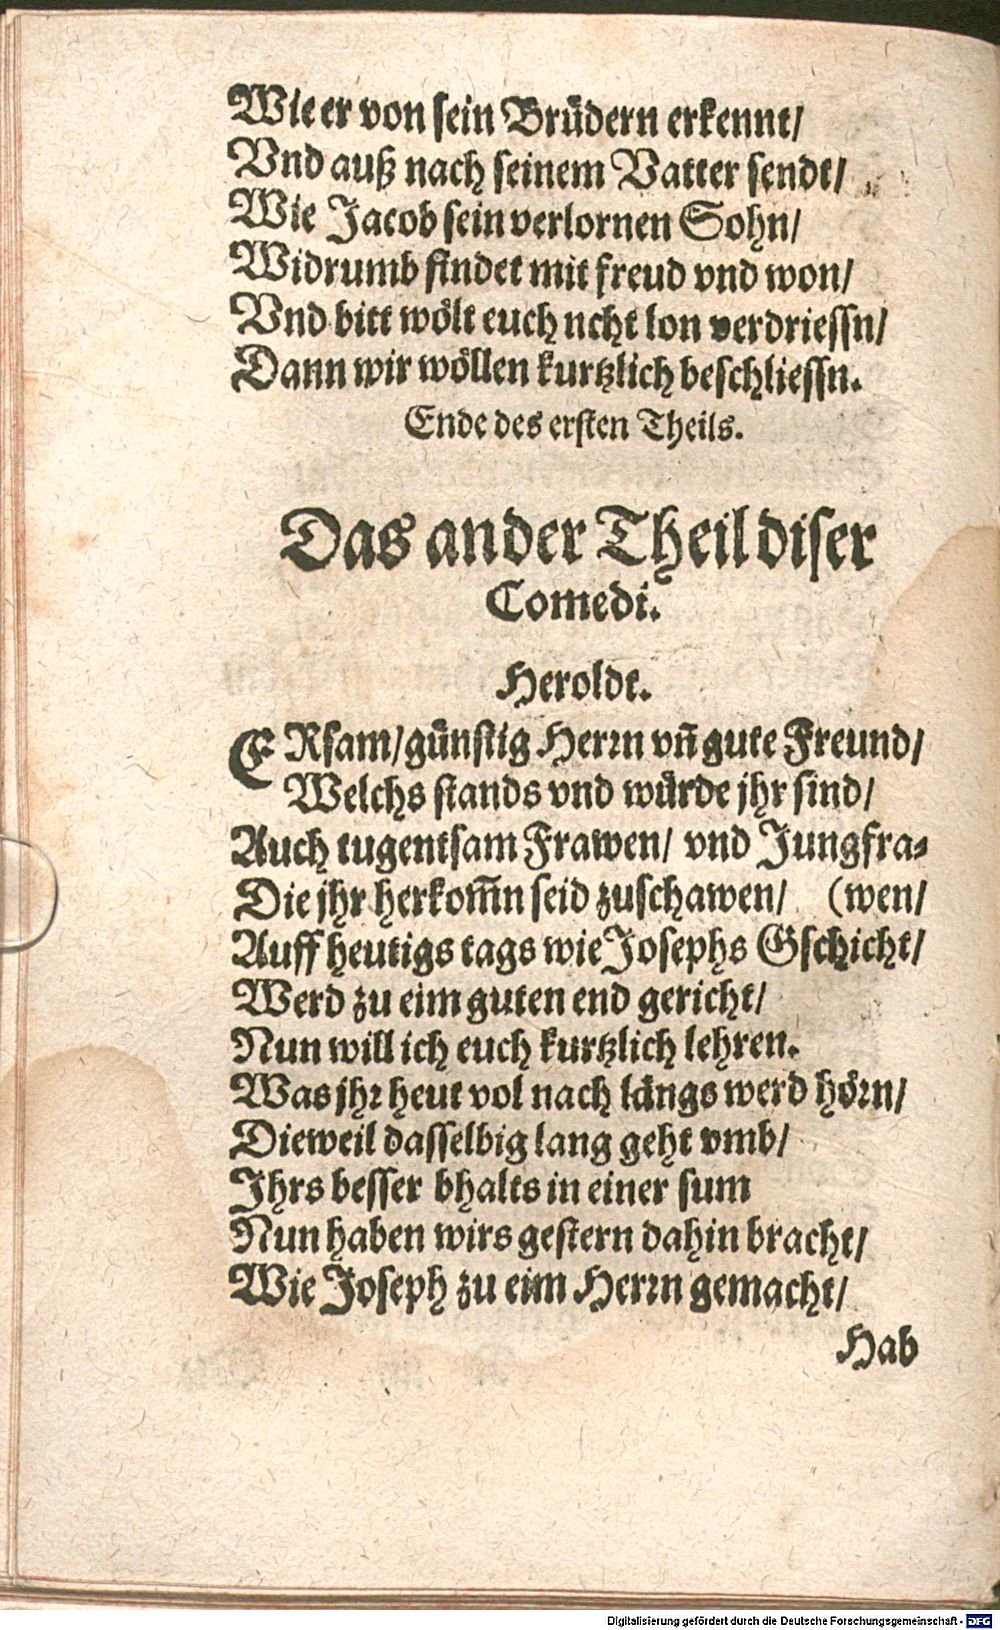 Wie er von sein Brüdern erkennt/
Vnd auß nach seinem Vatter sendt/
Wie Jacob sein verlornen Sohn/
Widrumb findet mit freud vnd won/
Vnd bitt wölt euch ncht lon verdriessn/
Dann wir wöllen kurtzlich beschliessn.
Ende des ersten Theils.
Das ander Theil diser
Comedi.
Heroldt.
ERsam/günstig Herrn vñ gute Freund/
Welchs stands vnd würde jhr sind/
Auch tugentsam Frawen/ vnd Jungfra-
Die jhr herkom̃n seid zuschawen/ (wen/
Auff heutigs tags wie Josephs Gschicht/
Werd zu eim guten end gericht/
Nun will ich euch kurtzlich lehren.
Was jhr heut vol nach längs werd hörn/
Dieweil dasselbig lang geht vmb/
Jhrs besser bhalts in einer sum
Nun haben wirs gestern dahin bracht/
Wie Joseph zu eim Herrn gemacht/
Hab
Digitalisierung gefördert durch die Deutsche Forschungsgemeinschaft - DFG